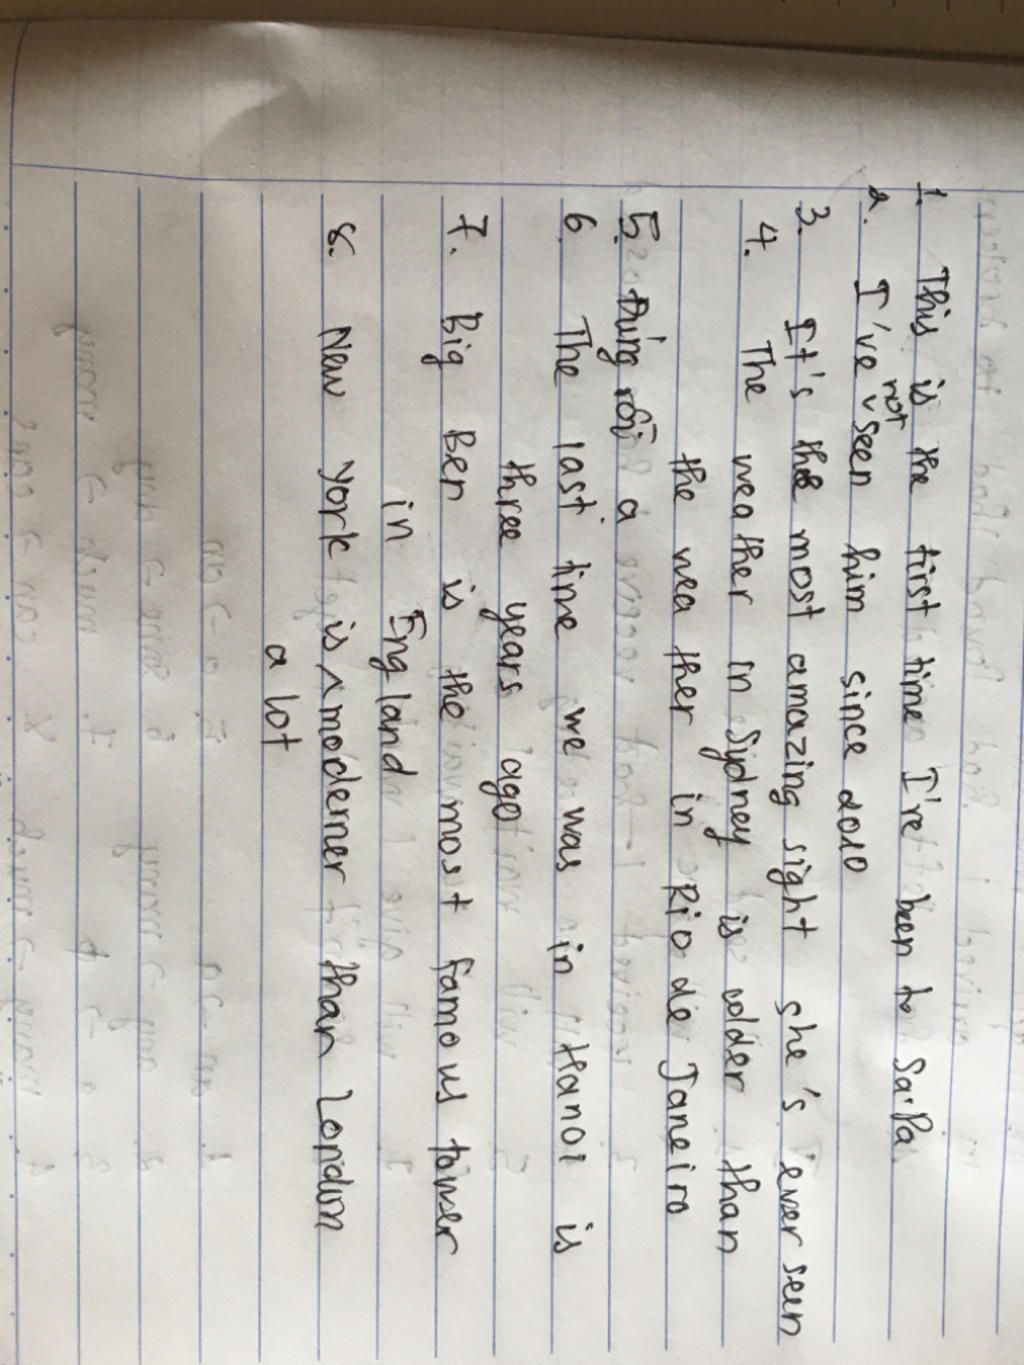 1. This is the first time I've been to Sa Pa.
2. I've not seen him since 2010
3. It's the most amazing sight she's ever seen
4. The weather in Sydney is colder than
the weather in Rio de Janeiro
5.
6. The last time we was in Hanoi is
three years ago
7. Big Ben is the most famous towser
in England
8. New York is ^ moderner than London
a lot